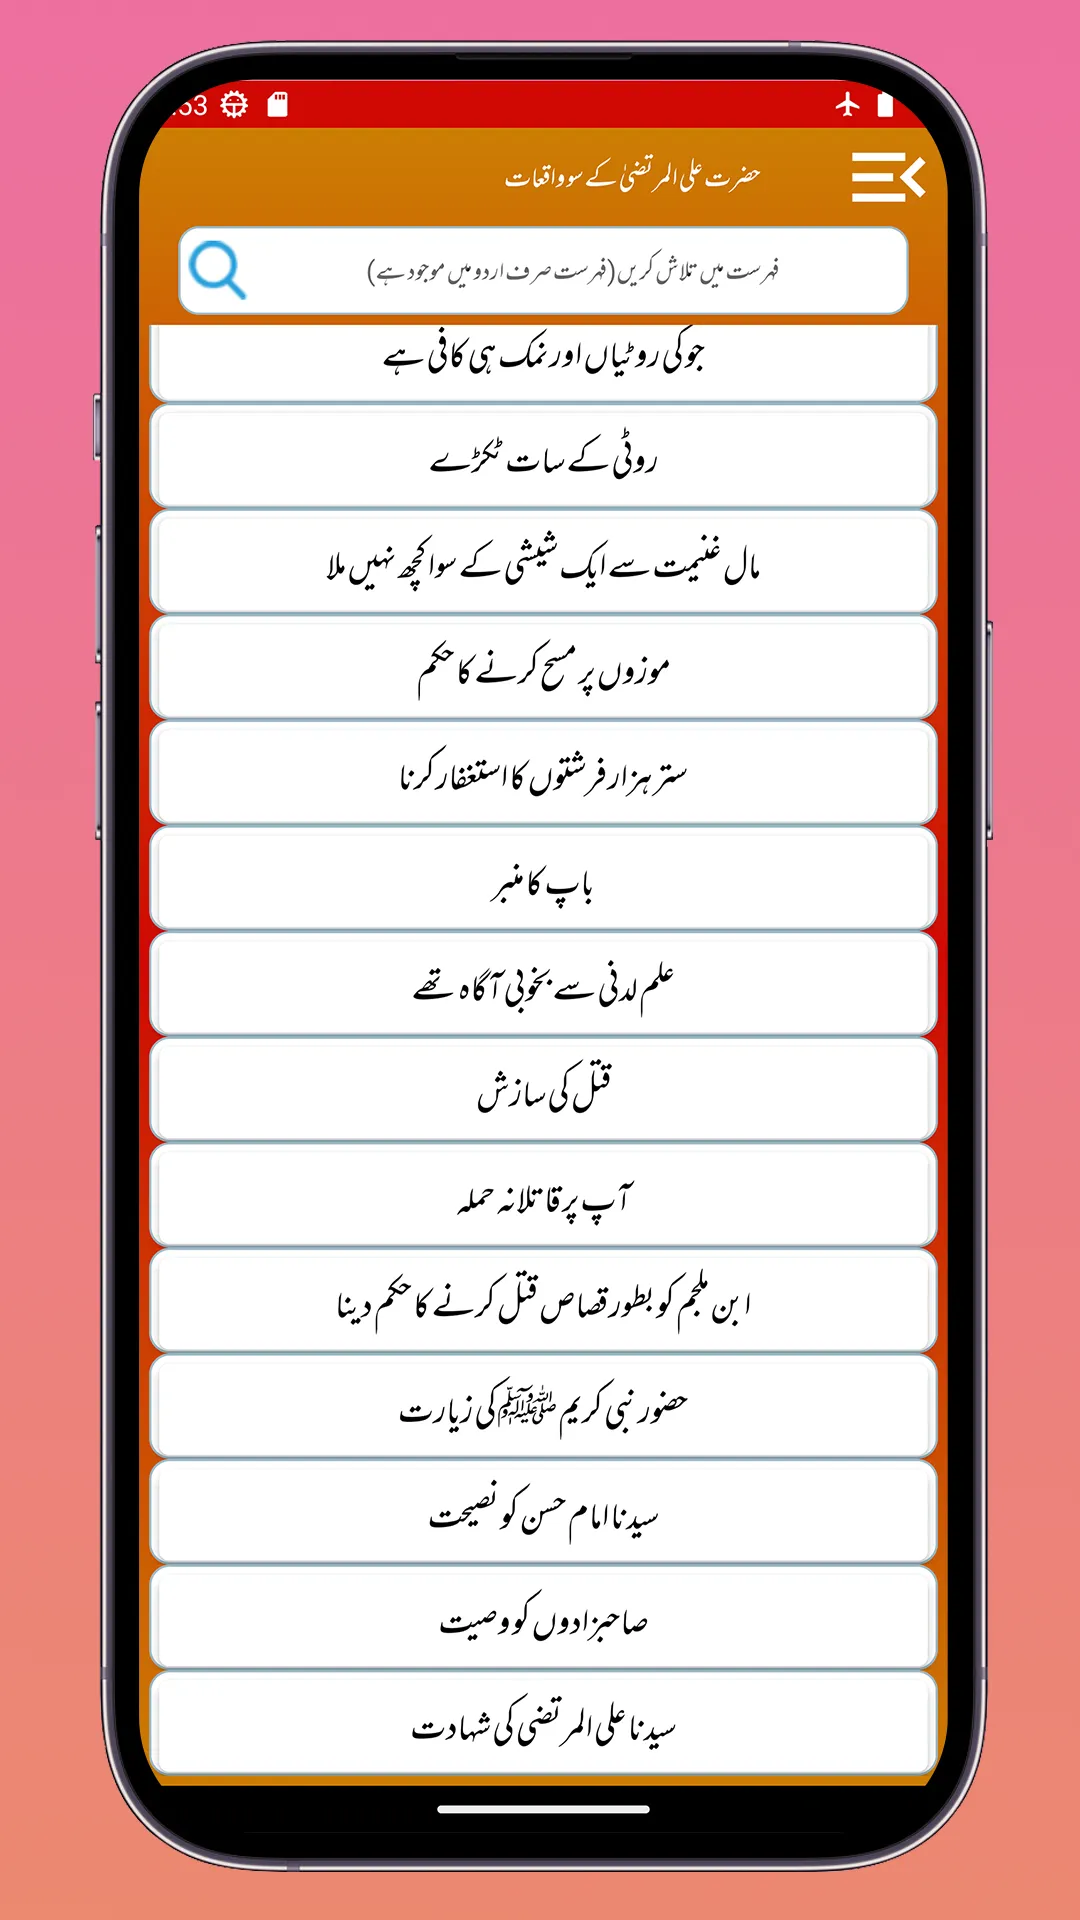 53
حضرت علی المرتضیٰ کے سو واقعات
فہرست میں تلاش کریں (فہرست صرف اردو میں موجود ہے)
جو کی روٹیاں اور نمک ہی کافی ہے
روٹی کے سات ٹکڑے
مال غنیمت سے ایک شیشی کے سوا کچھ نہیں ملا
موزوں پر مسح کرنے کا حکم
ستر ہزار فرشتوں کا استغفار کرنا
باپ کا منبر
علم لدنی سے بخوبی آگاہ تھے
قتل کی سازش
آپ پر قاتلانہ حملہ
ابن ملجم کو بطور قصاص قتل کرنے کا حکم دینا
حضور نبی کریم ﷺ کی زیارت
سیدنا امام حسن کو نصیحت
صاحبزادوں کو وصیت
سیدنا علی المرتضی کی شہادت